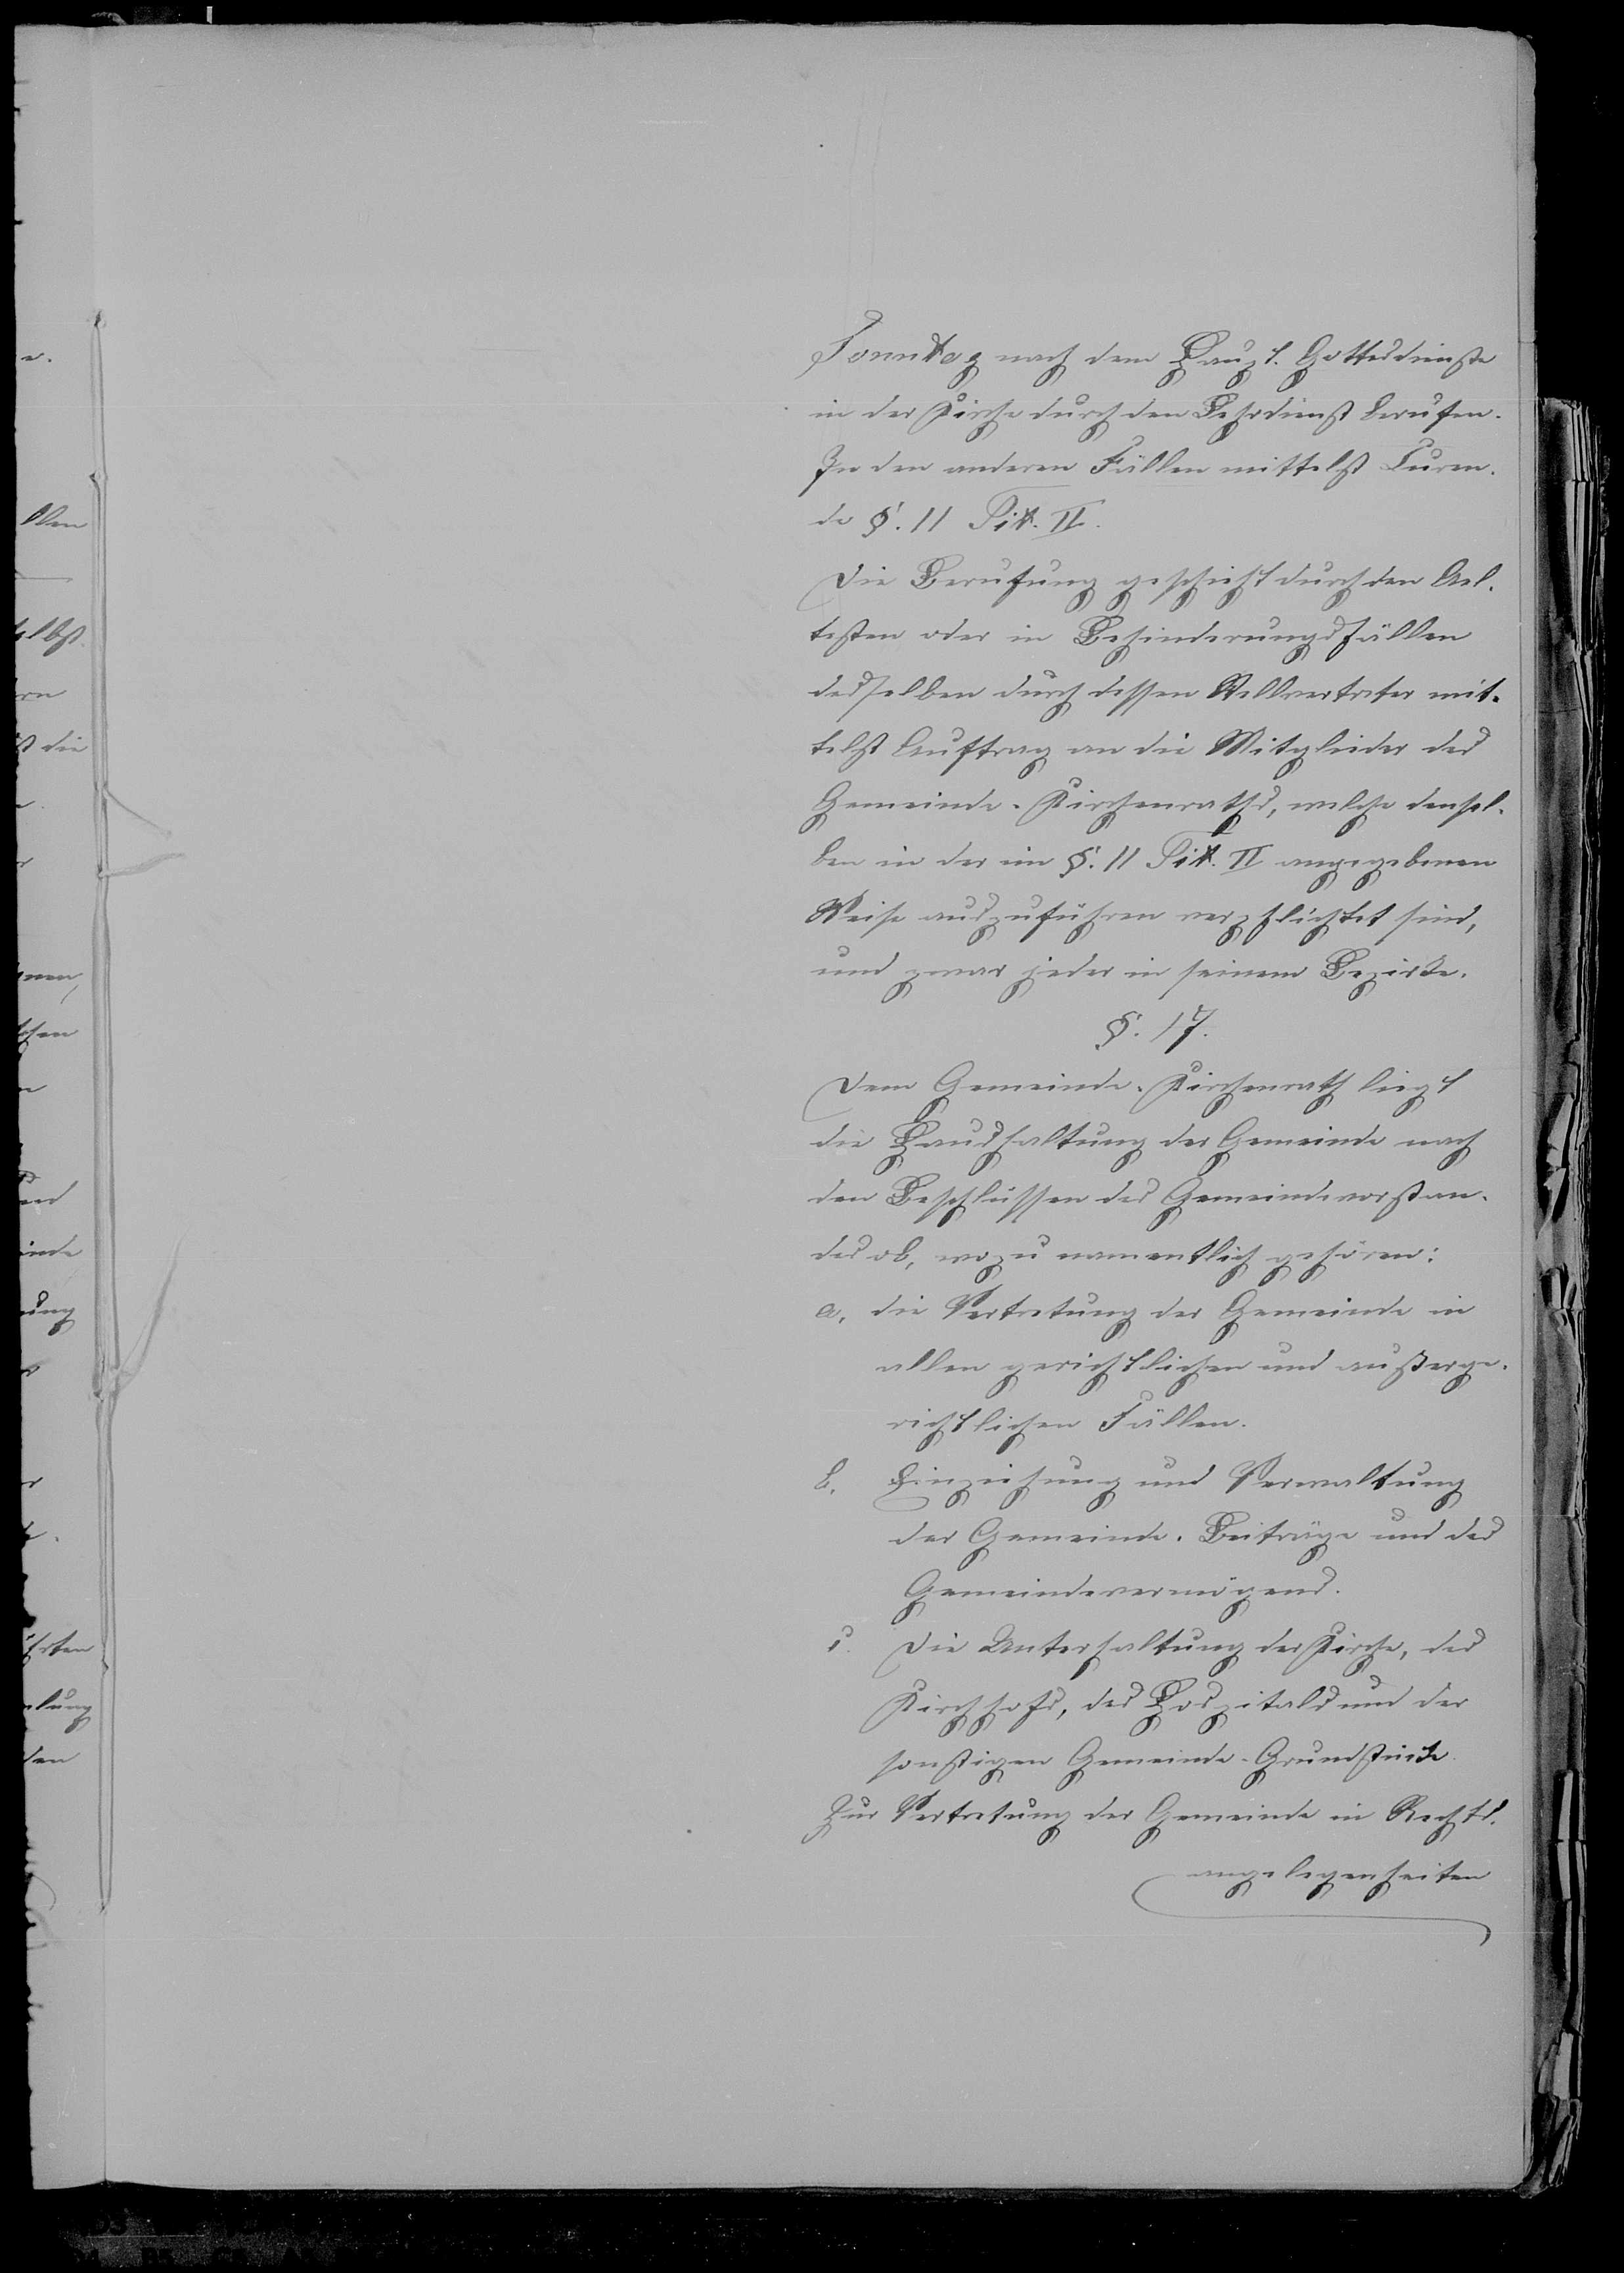 Sonntag nach dem Haupt-Gottesdienste
in der Kirche durch den berufen.
In den anderen Fällen mittelst Curren-
de §. 11 Tit. II.
Die Berufung geschieht durch den Ael-
testen oder in Behinderungsfällen
desselben durch dessen Stellvertreter mit-
telst Auftrag an die Mitglieder des
Gemeinde-Kirchenraths, welche densel-
ben in der im §. 11 Tit. II angegebenen
Weise auszuführen verpflichtet sind,
und zwar jeder in seinem Bezirke.
§. 17.
Dem Gemeinde-Kirchenrath liegt
die Haushaltung der Gemeinde nach
den Beschlüssen des Gemeindevorstan-
des ob, wozu namentlich gehören:
a. die Vertretung der Gemeinde in
allen gerichtlichen und außerge-
richtlichen Fällen.
b. Einziehung und Verwaltung
der Gemeinde-Beiträge und des
Gemeindevermögens.
c. Die Unterhaltung der Kirche, des
Kirchhofs, des Hospitals und der
sonstigen Gemeinde-Grundstücke.
Zur Vertretung der Gemeinde in Rechts-
angelegenheiten